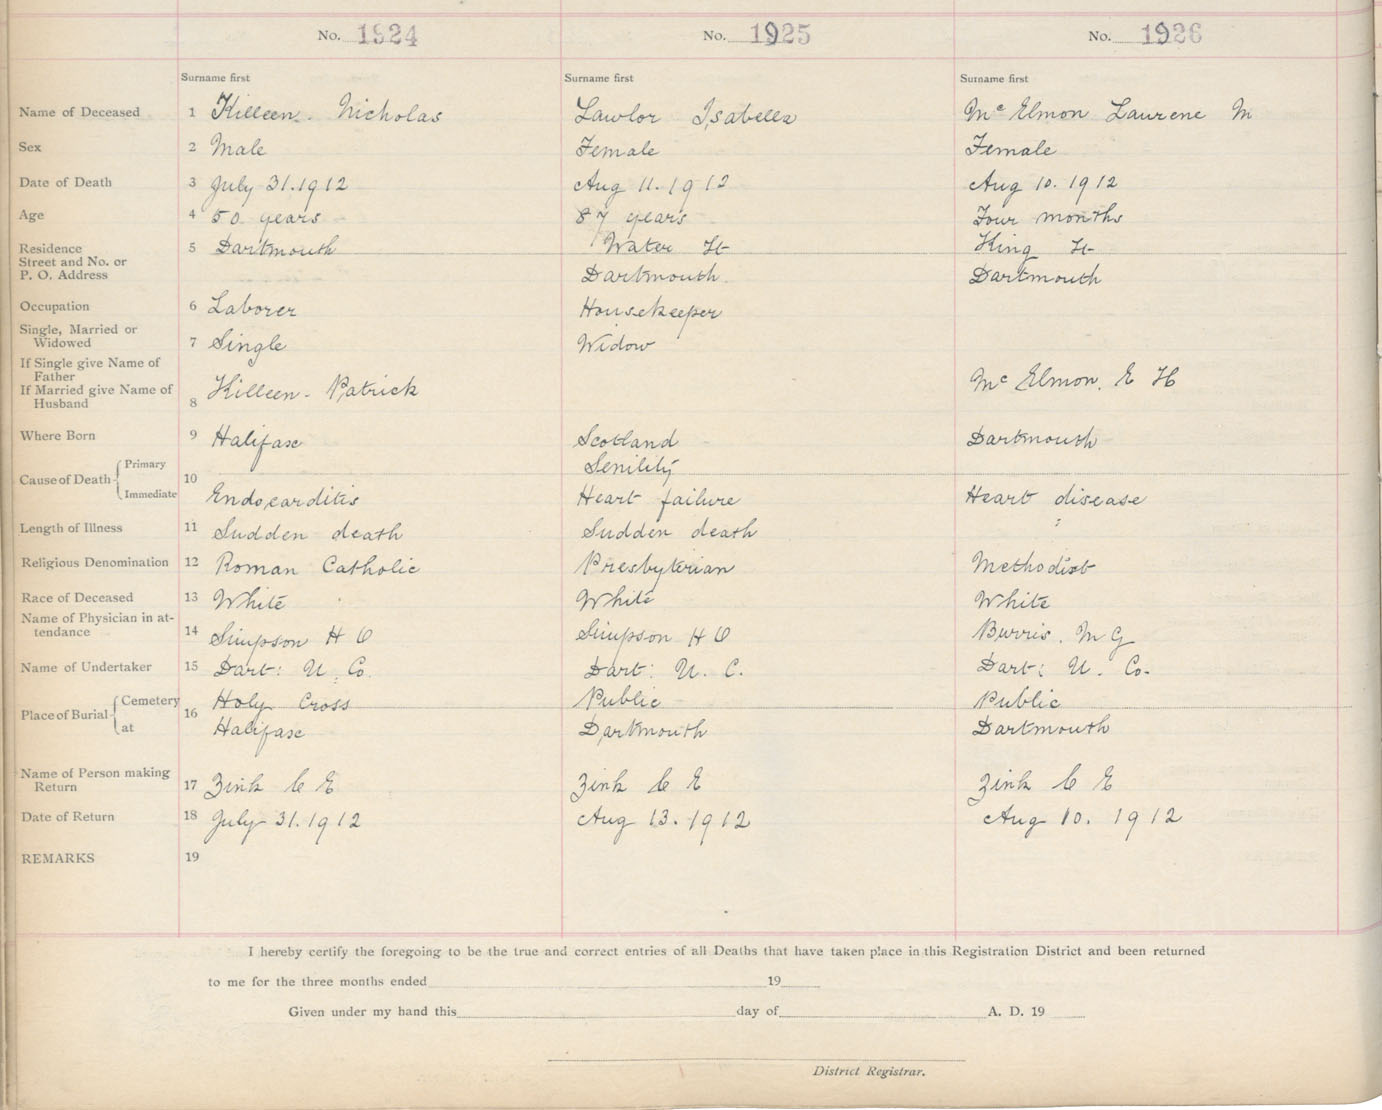 No. 1924 No. 1925 No. 1926
Surname first Surname first Surname first
Name of Deceased 1 Killeen. Nicholas Lawlor Isabella McElmon Laurene M
Sex 2 Male Female Female
Date of Death 3 July 31.1912 Aug 11.1912 Aug 10.1912
Age 4 50 years 87 years Four months
Residence 5 Dartmouth Water St King St
Street and No. or
P. O. Address Dartmouth Dartmouth
Occupation 6 Laborer Housekeeper
Single, Married or
Widowed 7 Single Widow
If Single give Name of
Father
If Married give Name of
Husband 8 Killeen - Patrick McElmon. E H
Where Born 9 Halifax Scotland Dartmouth
Cause of Death Primary 10 Senility
Immediate Endocarditis Heart failure Heart disease
Length of Illness 11 Sudden death Sudden death
Religious Denomination 12 Roman Catholic Presbyterian Methodist
Race of Deceased 13 White White White
Name of Physician in at-
tendance 14 Simpson H O Simpson H O Burris. M G
Name of Undertaker 15 Dart: U. Co. Dart: U. C. Dart: U. Co.
Place of Burial Cemetery 16 Holy Cross Public Public
at Halifax Dartmouth Dartmouth
Name of Person making
Return 17 Zink C E Zink C E Zink C E
Date of Return 18 July 31.1912 Aug 13.1912 Aug 10. 1912
REMARKS 19
I hereby certify the foregoing to be the true and correct entries of all Deaths that have taken place in this Registration District and been returned
to me for the three months ended 19
Given under my hand this day of A. D. 19
District Registrar.